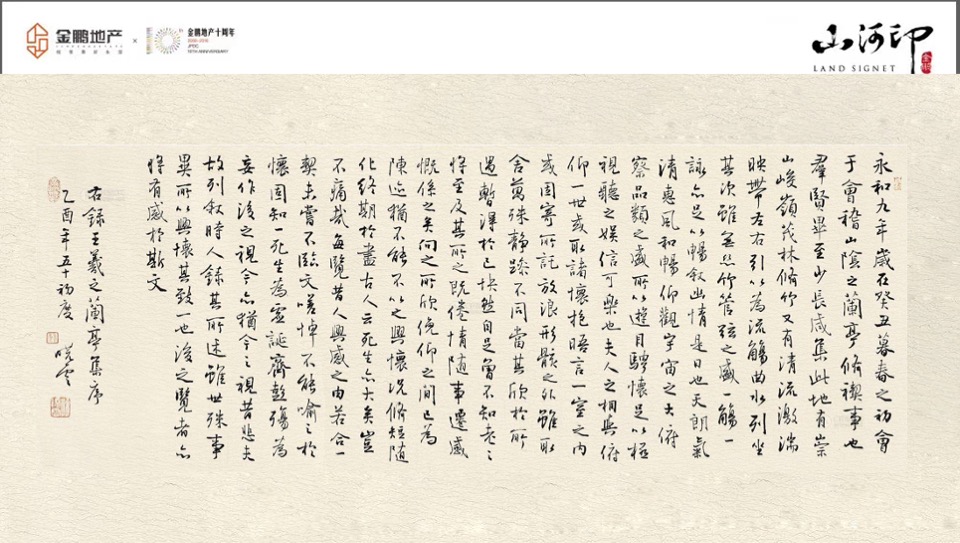 金鹏地产
×
金鹏地产十周年
2008-2018
JPDC
10TH ANNIVERSARY
山河印
LAND SIGNET
永和九年歲在癸丑暮春之初會
于會稽山陰之蘭亭脩禊事也
群賢畢至少長咸集此地有崇
山峻嶺茂林脩竹又有清流激湍
映帶左右引以為流觴曲水列坐
其次雖無絲竹管弦之盛一觴一
詠亦足以暢敘幽情是日也天朗氣
清惠風和暢仰觀宇宙之大俯
察品類之盛所以遊目騁懷足以極
視聽之娛信可樂也夫人之相與俯
仰一世或取諸懷抱晤言一室之內
或因寄所託放浪形骸之外雖取
舍萬殊靜躁不同當其欣於所
遇暫得於己快然自足曾不知老之
將至及其所之既倦情隨事遷感
慨係之矣向之所欣俛仰之間已為
陳迹猶不能不以之興懷況脩短隨
化終期於盡古人云死生亦大矣豈
不痛哉每覽昔人興感之由若合一
契未嘗不臨文嗟悼不能喻之於
懷固知一死生為虛誕齊彭殤為
妄作後之視今亦猶今之視昔悲夫
故列敘時人錄其所述雖世殊事
異所以興懷其致一也後之覽者亦
將有感於斯文
右錄王羲之蘭亭集序
乙酉年五十初度